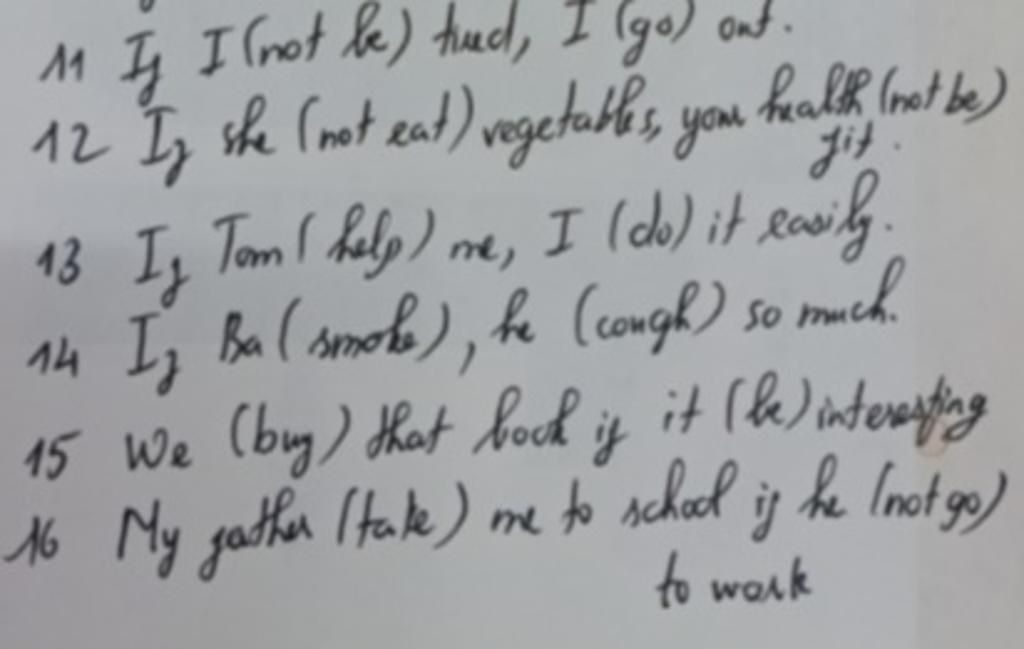 11 If I (not be) tired, I (go) out.
12 If she (not eat) vegetables, your health (not be)
fit.
13 If Tom (help) me, I (do) it easily.
14 If Ba (smoke), he (cough) so much.
15 We (buy) that book if it (be) interesting
16 My father (take) me to school if he (not go)
to work